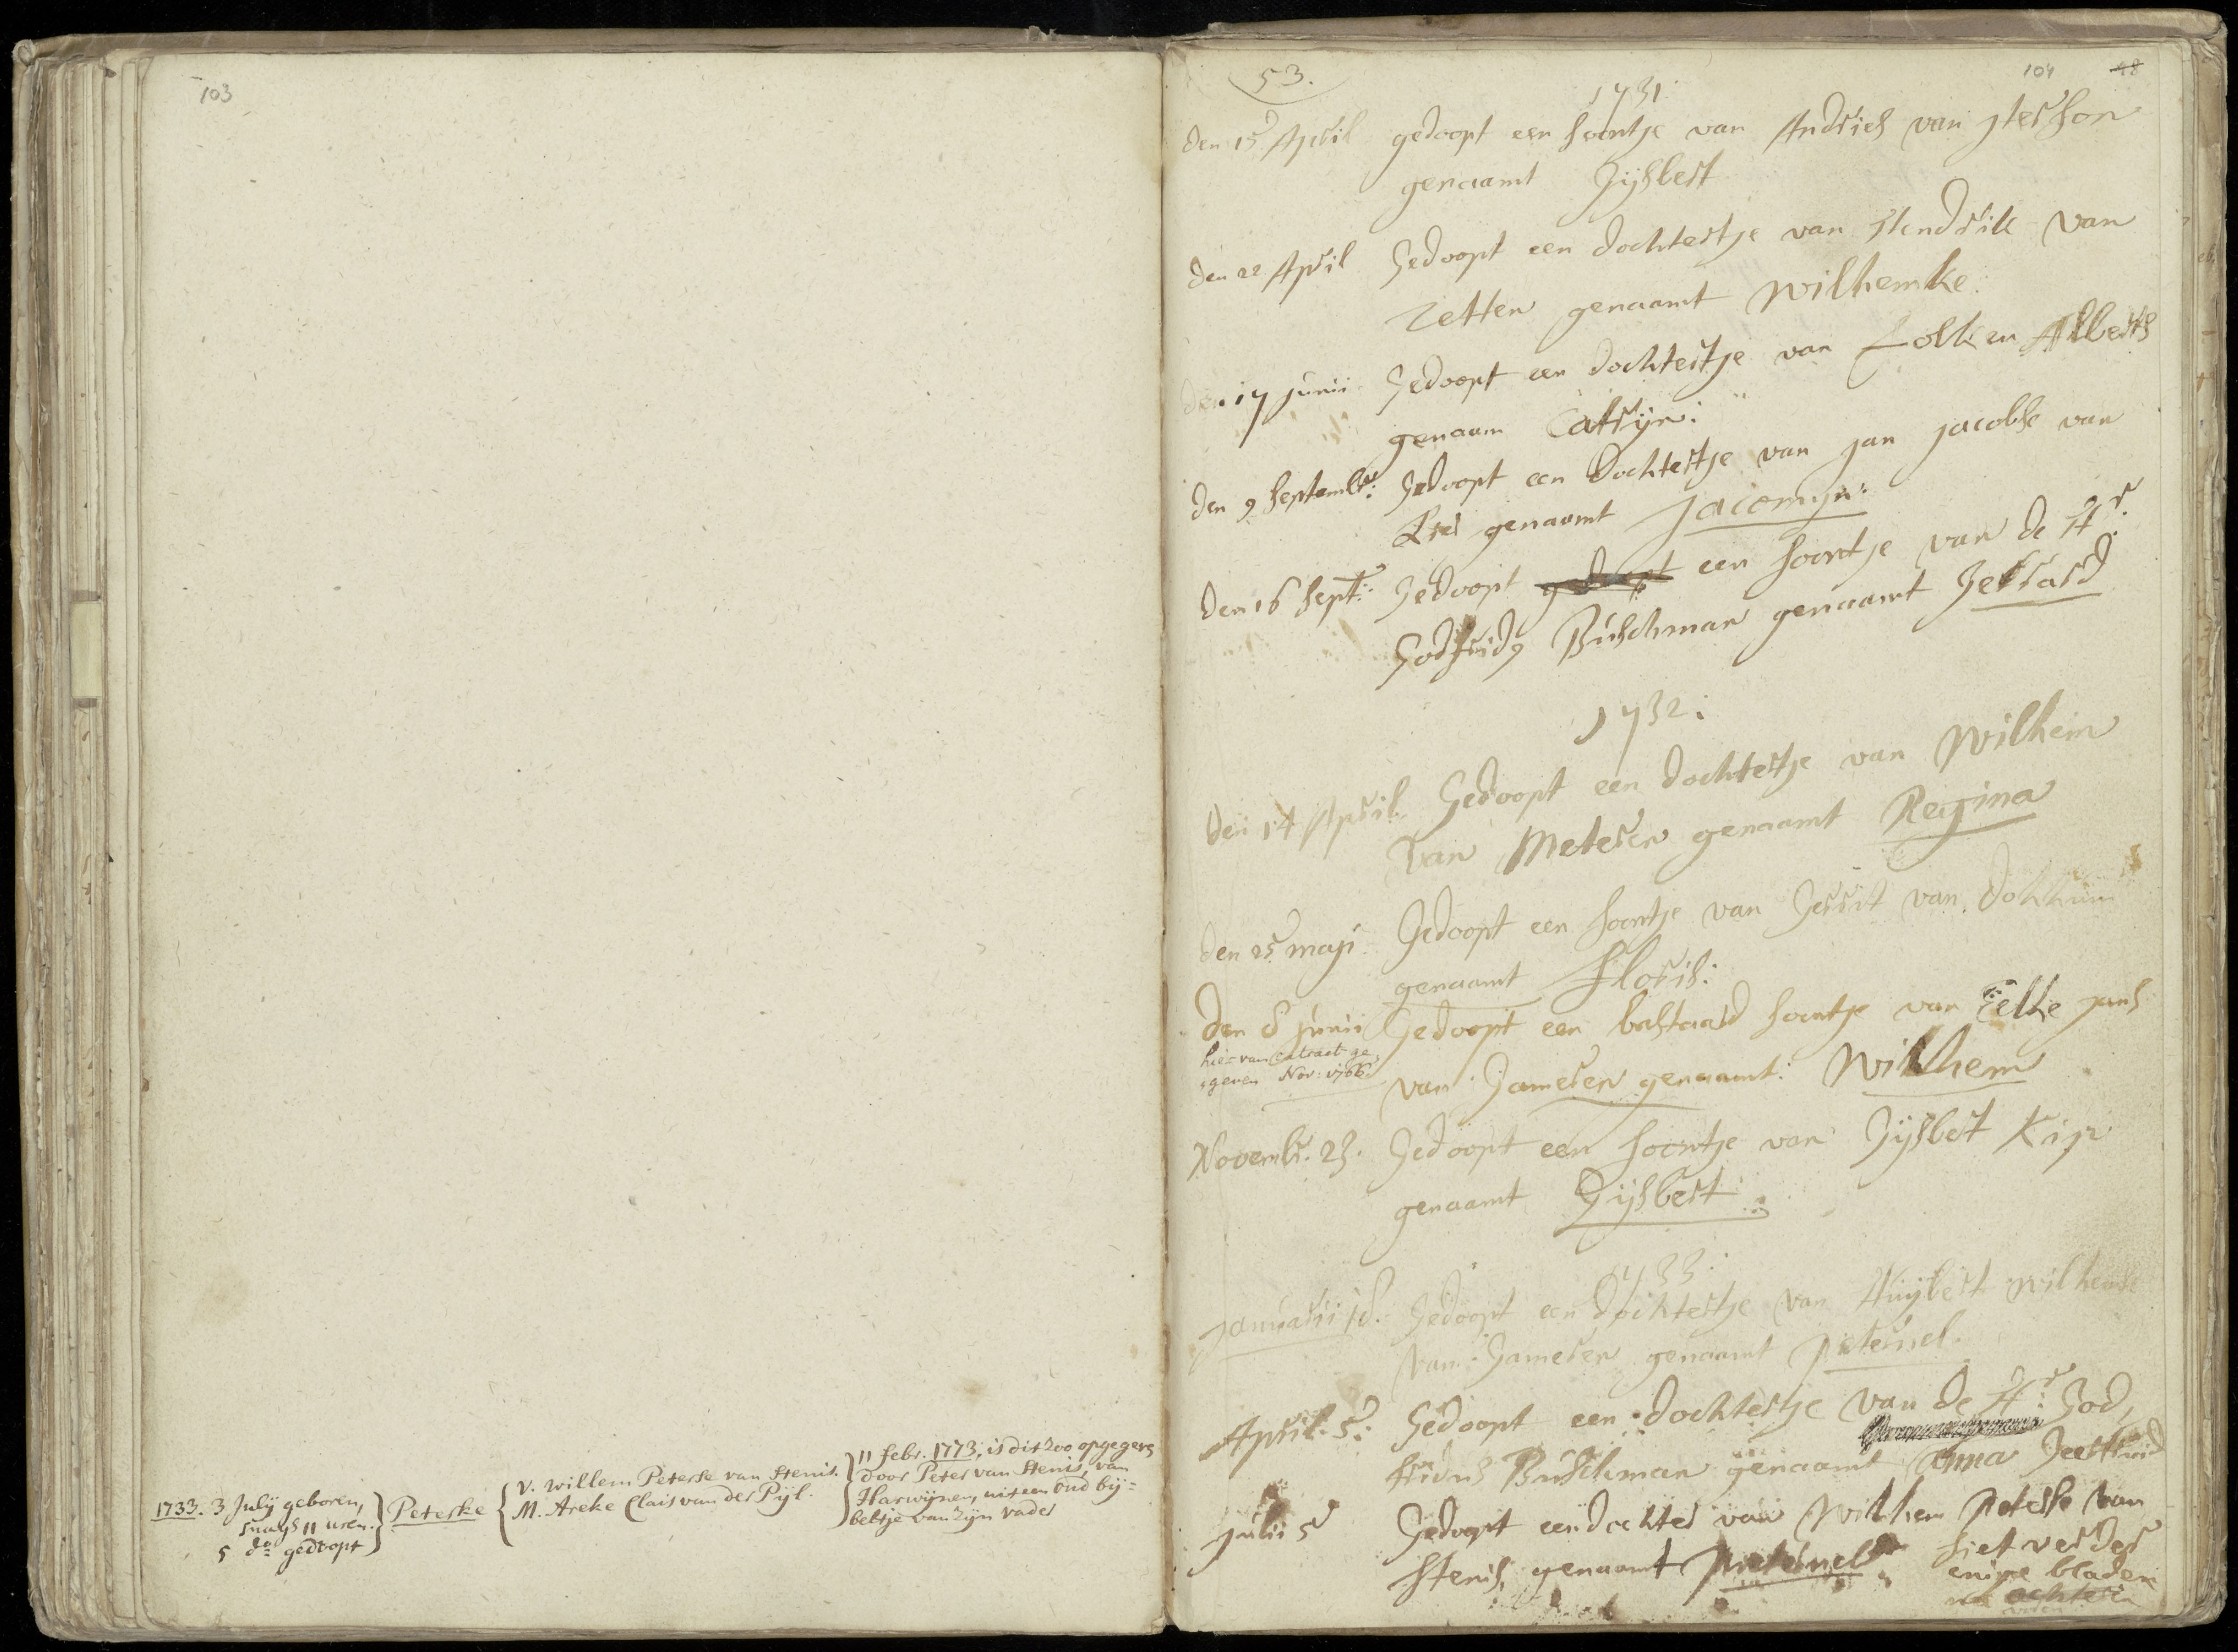 103
1733. 3 July geboren,
snags 11 uren.
5 do gedoopt
Peterke
V. Willem Peterse van Stenis.
M. Areke Clais van der Pyl.
11 febr. 1773, is dit zoo opgegevn
door Peter van Stenis, van
Harwynen, uit een oud bij=
beltje van zijn vader
53.
104 48
1731
den 15 April gedoopt een soontje van Andries van
genaamt Gijsbert
den 22 April Gedoopt een dochtertje van Hendrik van
Zetten genaamt Wilhemke.
den 17 junii Gedoopt een dochtertje van Folken Alberts
genaam Catrijn:
den 9 Septembr: Gedoopt een Dochtertje van jan jacobse van
genaamt Jacomyn.
Den 16 Sept: Gedoopt gedoopt een soontje van de Hr.
Godfrid9 Buschman genaamt Gerrard
1732:
den 14 April. Gedoopt een dochtertje van Wilhem
van Meteren genaamt Regina
den 25 maji Gedoopt een soontje van Gerrit van Dokkum
genaamt Floris:
Den 8 junii Gedoopt een bastaard soontje van Eelke jans
hier van extract ge,
,geven Nov: 1766.
van Gameren genaamt: Wilhem
Novembr. 23. Gedoopt een soontje van Gijsbert Kip
genaamt Gijsbert:
1733:
januarii 18. Gedoopt een dochtertje van Huijbert Wilhemse
van Gameren genaamt Peternel.
April. 5: Gedoopt een dochtertje van de Hr: God,
fridus Buschman genaamt Anna Geertruid
julii 5 Gedoopt een dochter van Wilhem Peterse van
Stenis, genaamt Peternel: siet verder
enige bladen
na achteren